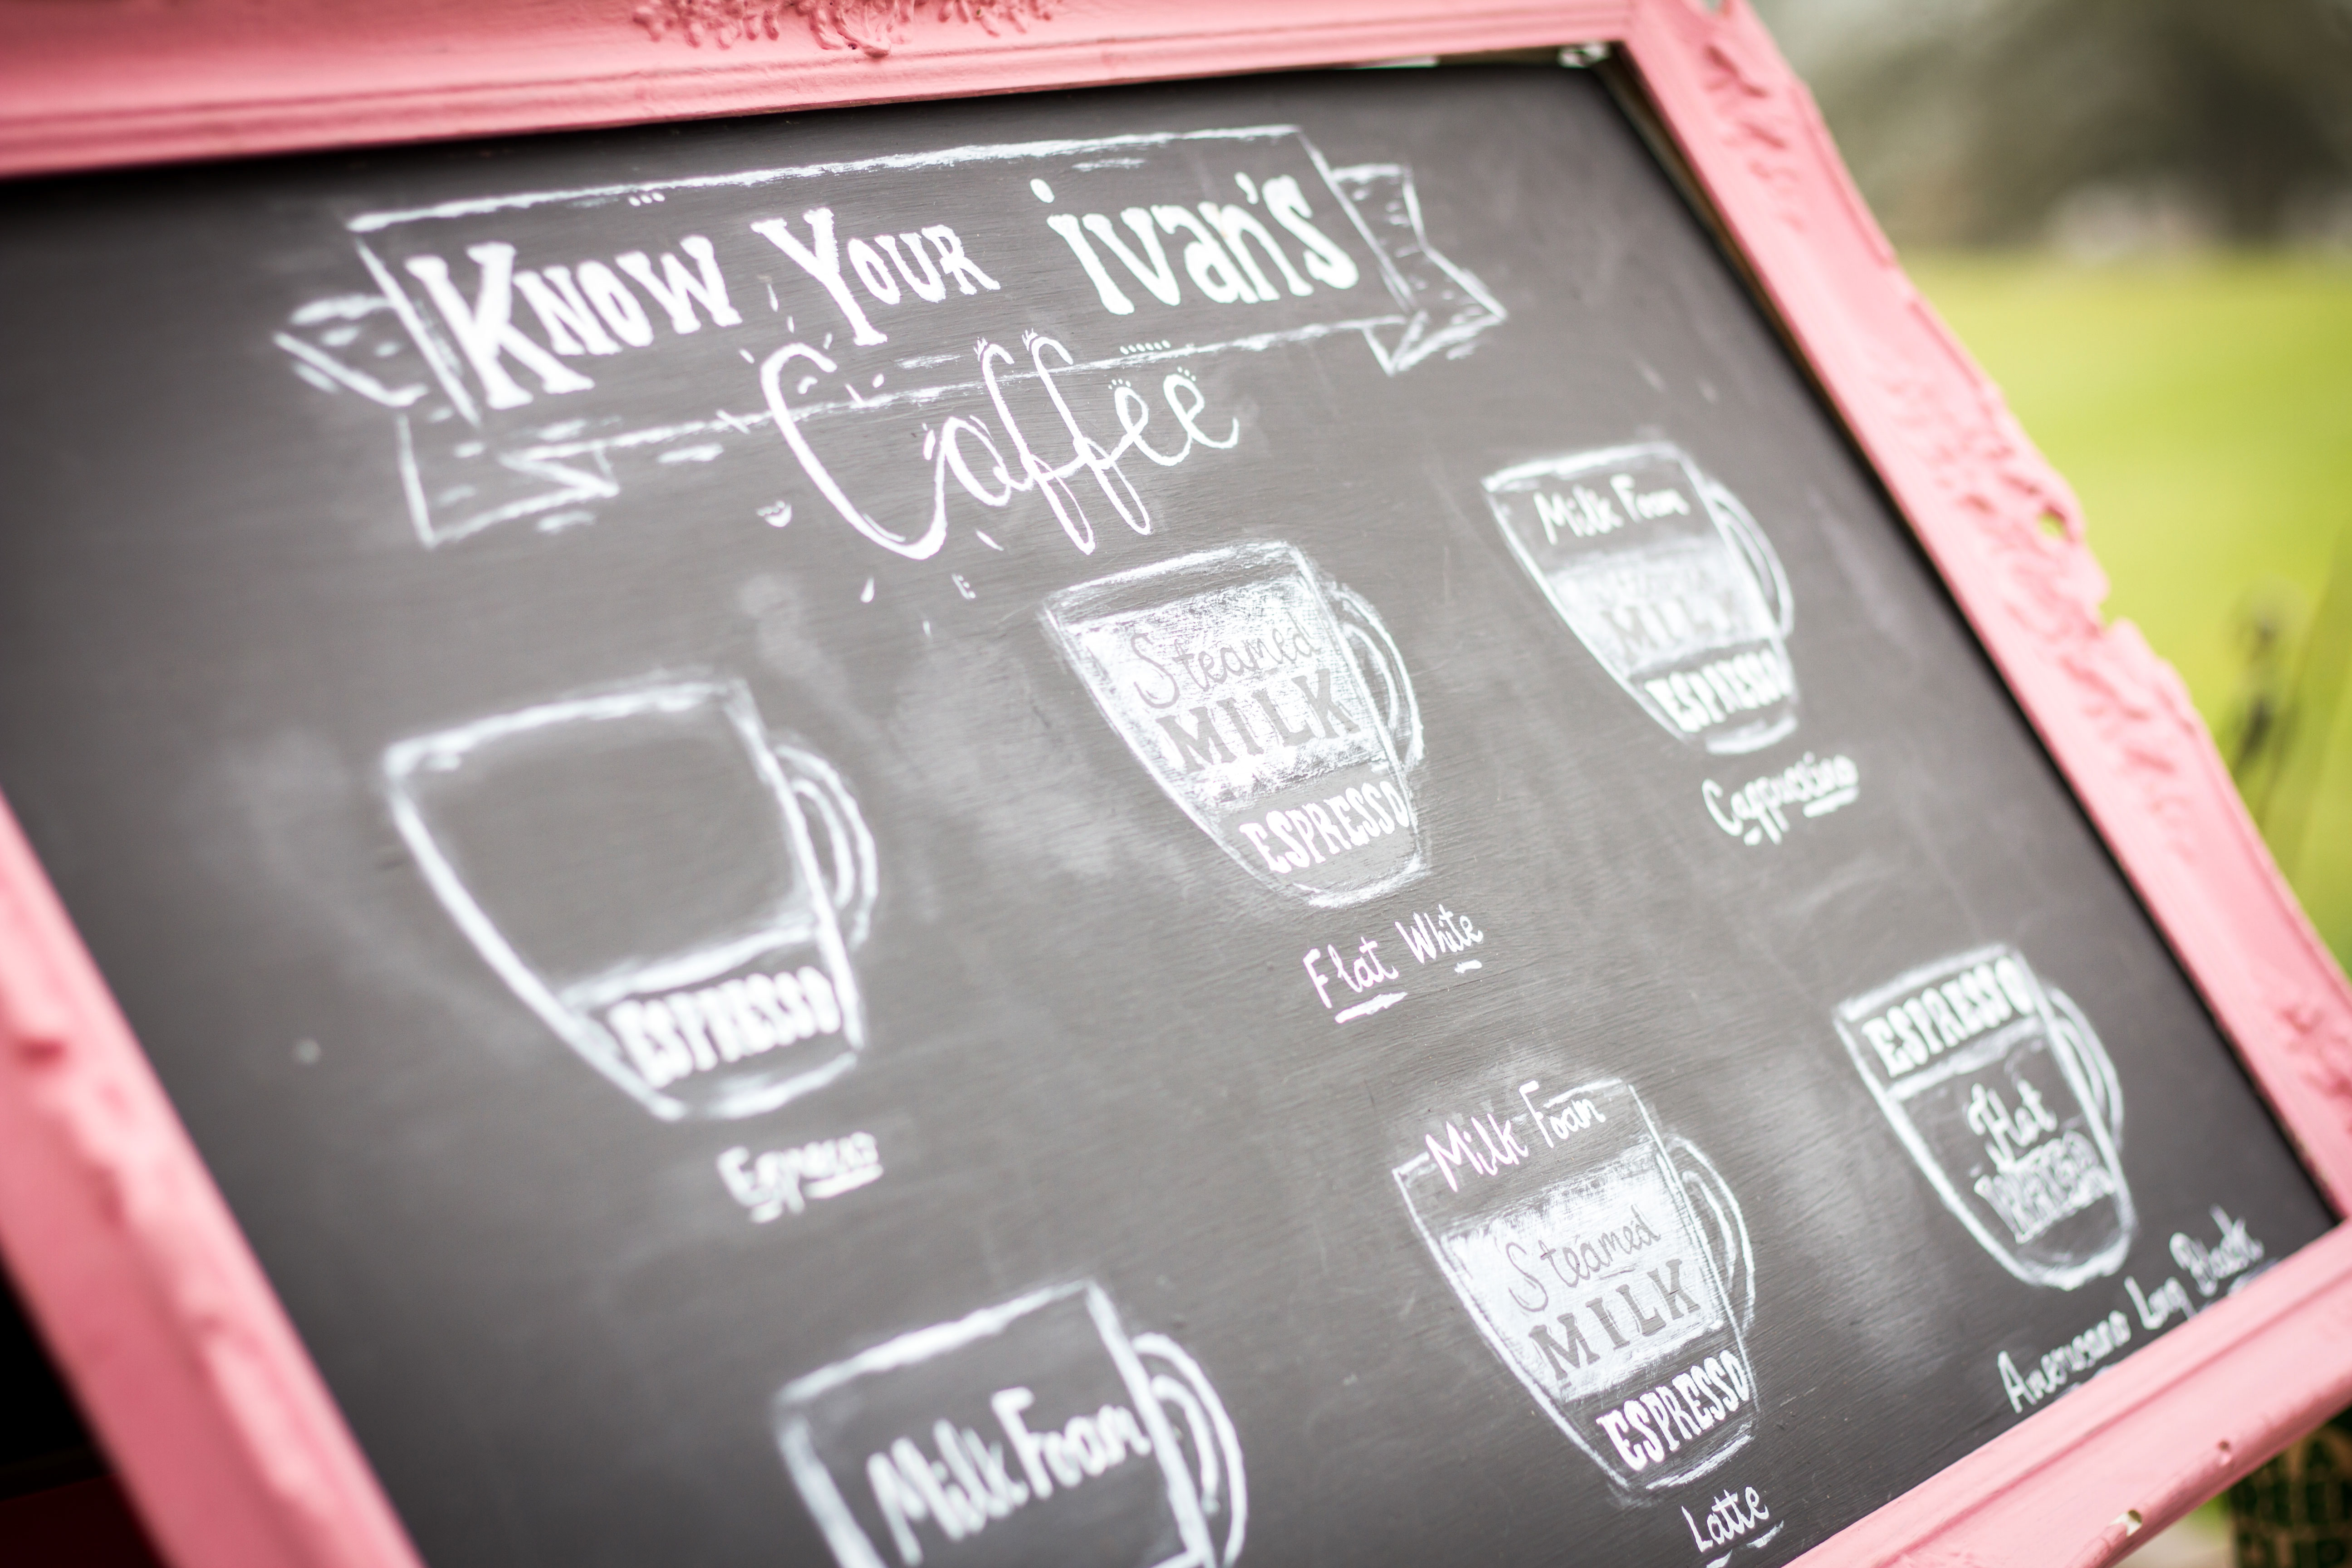 KNOW YOUR ivan's
Coffee
ESPRESSO
Espresso
Steamed
MILK
ESPRESSO
Flat White
Milk Foam
MILK
ESPRESSO
Cappuccino
Milk Foam
Milk Foam
Steamed
MILK
ESPRESSO
Latte
ESPRESSO
Hot
WATER
Americano Long Black